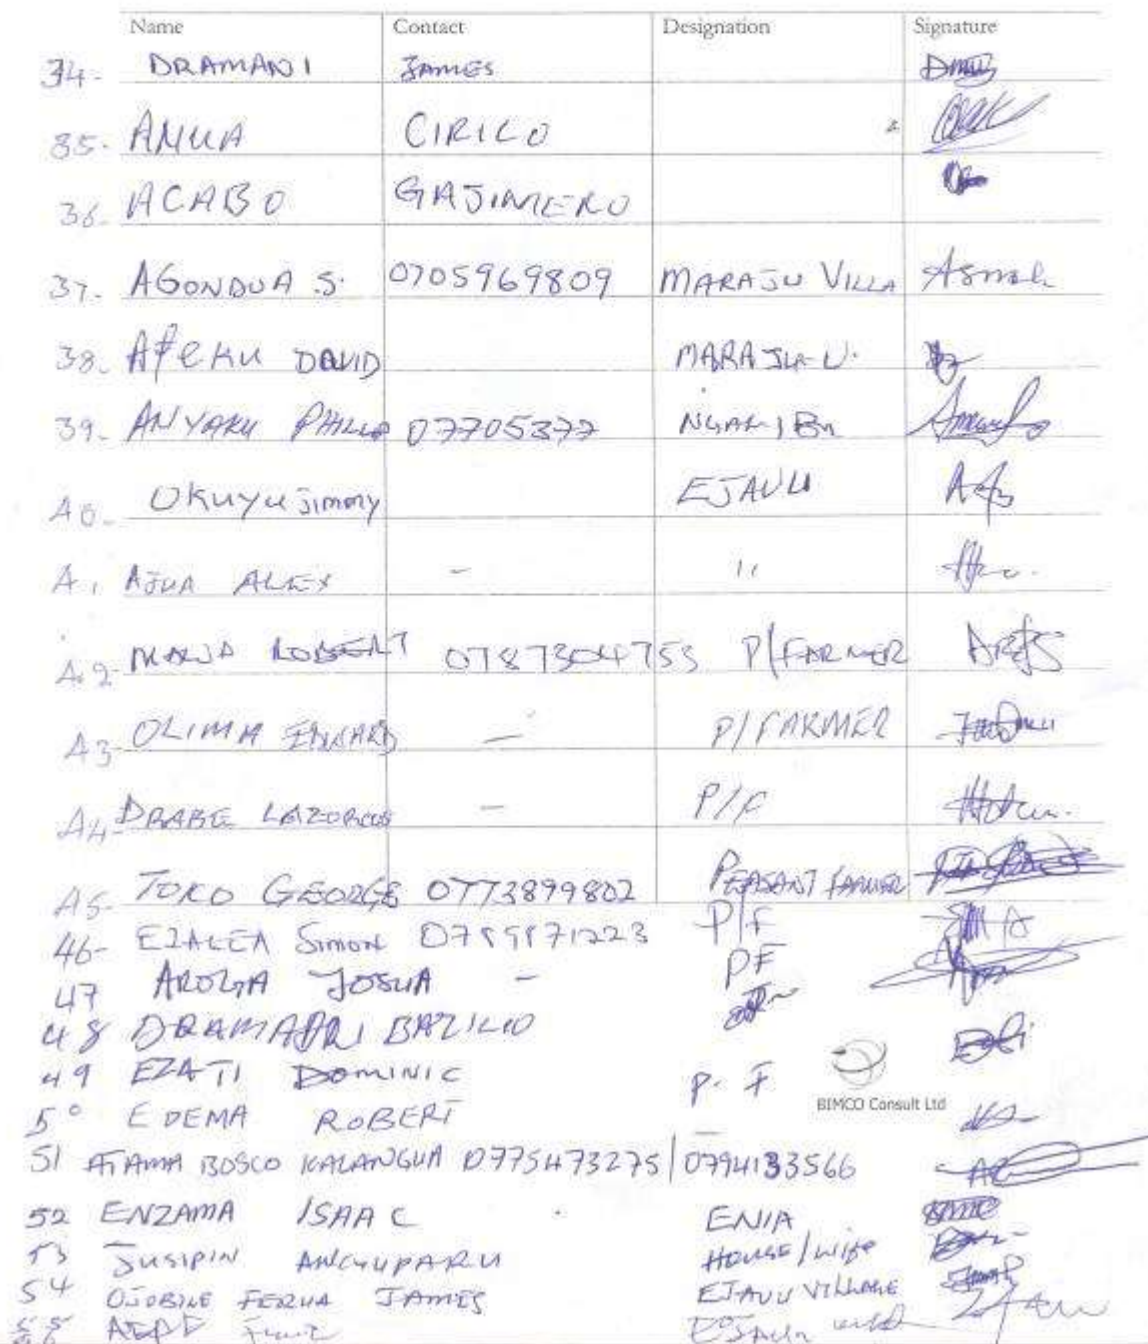 Name Contact Designation Signature
34- DRAMANI JAMES
35- ANUA CIRILO
36- ACABO GAJIMERO
37- AGONDUA .S. 0705969809 MARAJU VILLA
38- Afeku DAVID MARAJU-V.
39- ANYAKU PHILLP 07705377
40- Okuyu jimmy EJAVU
A1 AJUA ALEX - 11
A2- ROBERT 0787304753 P/FARMER
A3- OLIMA EDWARD - P/FARMER
A4- DRABE LAZOROUS - P/F
A5- TOKO GEORGE 0773899802 PEASANT FARMER
46- EZALEA Simon P/F
47 JOSUA - PF
48 BAZILIO
49 EZATI DOMINIC P. F
50 EDEMA ROBERT -
BIMCO Consult Ltd
51 ATAMA BOSCO KALANGUA 0775473275/0794133566
52 ENZAMA ISAAC ENIA
53 JUSIPIN ANGUPARU HOUSE/wife
54 OJOBILE FERUA JAMES EJAVU VILLAGE
55